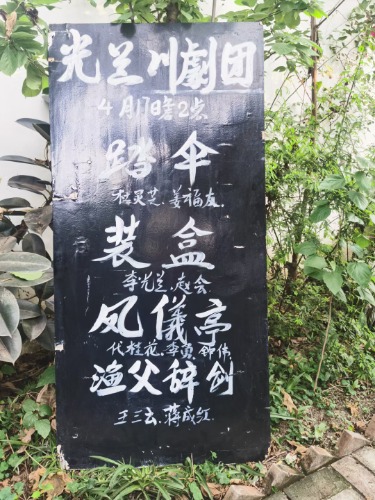 光兰川劇团
4月17日2点
踏伞
杜灵芝.姜福友.
装盒
李光兰.赵会
凤儀亭
代桂花.李勇.钟伟
渔父辞剑
王三云.蒋成红.